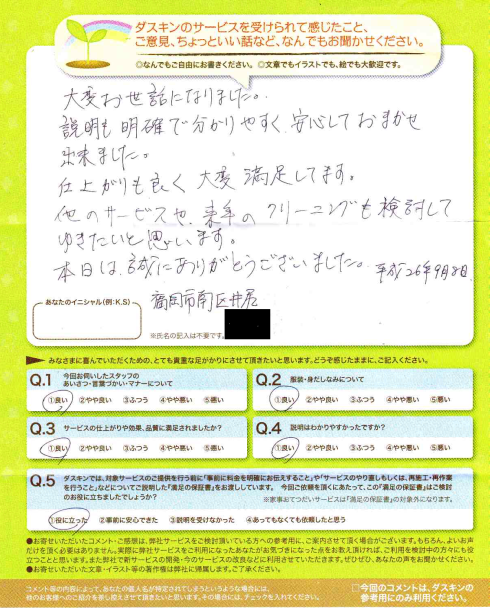 ダスキンのサービスを受けられて感じたこと、
ご意見、ちょっといい話など、なんでもお聞かせください。
◎なんでもご自由にお書きください。◎文章でもイラストでも、絵でも大歓迎です。
大変お世話になりました。
説明も明確で分かりやすく、安心しておまかせ
出来ました。
仕上がりも良く大変満足してます。
他のサービスや、来年のクリーニングも検討して
ゆきたいと思います。
本日は、誠にありがとうございました。
平成26年9月8日
福岡市南区井尻
あなたのイニシャル(例:K,S)
※氏名の記入は不要です。
みなさまに喜んでいただくための、とても貴重な足がかりにさせて頂きたいと思います。どうぞ感じたままに、ご記入ください。
Q.1 今回お伺いしたスタッフの
あいさつ・言葉づかい・マナーについて
①良い ②やや良い ③ふつう ④やや悪い ⑤悪い
Q.2 服装・身だしなみについて
①良い ②やや良い ③ふつう ④やや悪い ⑤悪い
Q.3 サービスの仕上がりや効果、品質に満足されましたか?
①良い ②やや良い ③ふつう ④やや悪い ⑤悪い
Q.4 説明はわかりやすかったですか?
①良い ②やや良い ③ふつう ④やや悪い ⑤悪い
Q.5 ダスキンでは、対象サービスのご提供を行う前に「事前に料金を明確にお伝えすること」や「サービスのやり直しもしくは、再施工・再作業
を行うこと」などについてご説明した『満足の保証書』をお渡ししています。 今回ご依頼を頂くにあたって、この『満足の保証書』はご検討
のお役に立ちましたでしょうか?
※家事おてつだいサービスは「満足の保証書」の対象外になります。
①役に立った ②事前に安心できた ③説明を受けなかった ④あってもなくても依頼したと思う
●お寄せいただいたコメント・ご感想は、弊社サービスをご検討頂いている方への参考用に、ご案内させて頂く場合がございます。もちろん、よいお声
だけを頂く必要はありません。実際に弊社サービスをご利用になったあなたがお気づきになった点をお教え頂ければ、ご利用を検討中の方々にも役
立つことと思います。また弊社で新サービスの開発・今のサービスの改良などに利用させていただきます。ぜひぜひ、あなたの声をお聞かせください。
●お寄せいただいた文章・イラスト等の著作権は弊社に帰属します。ご了承ください。
コメント等の内容によって、あなたの個人名が特定されてしまうというような場合には、
他のお客様へのご紹介を差し控えさせて頂きたいと思います。その場合は、チェックを入れてください。
□今回のコメントは、ダスキンの
参考用にのみ利用ください。